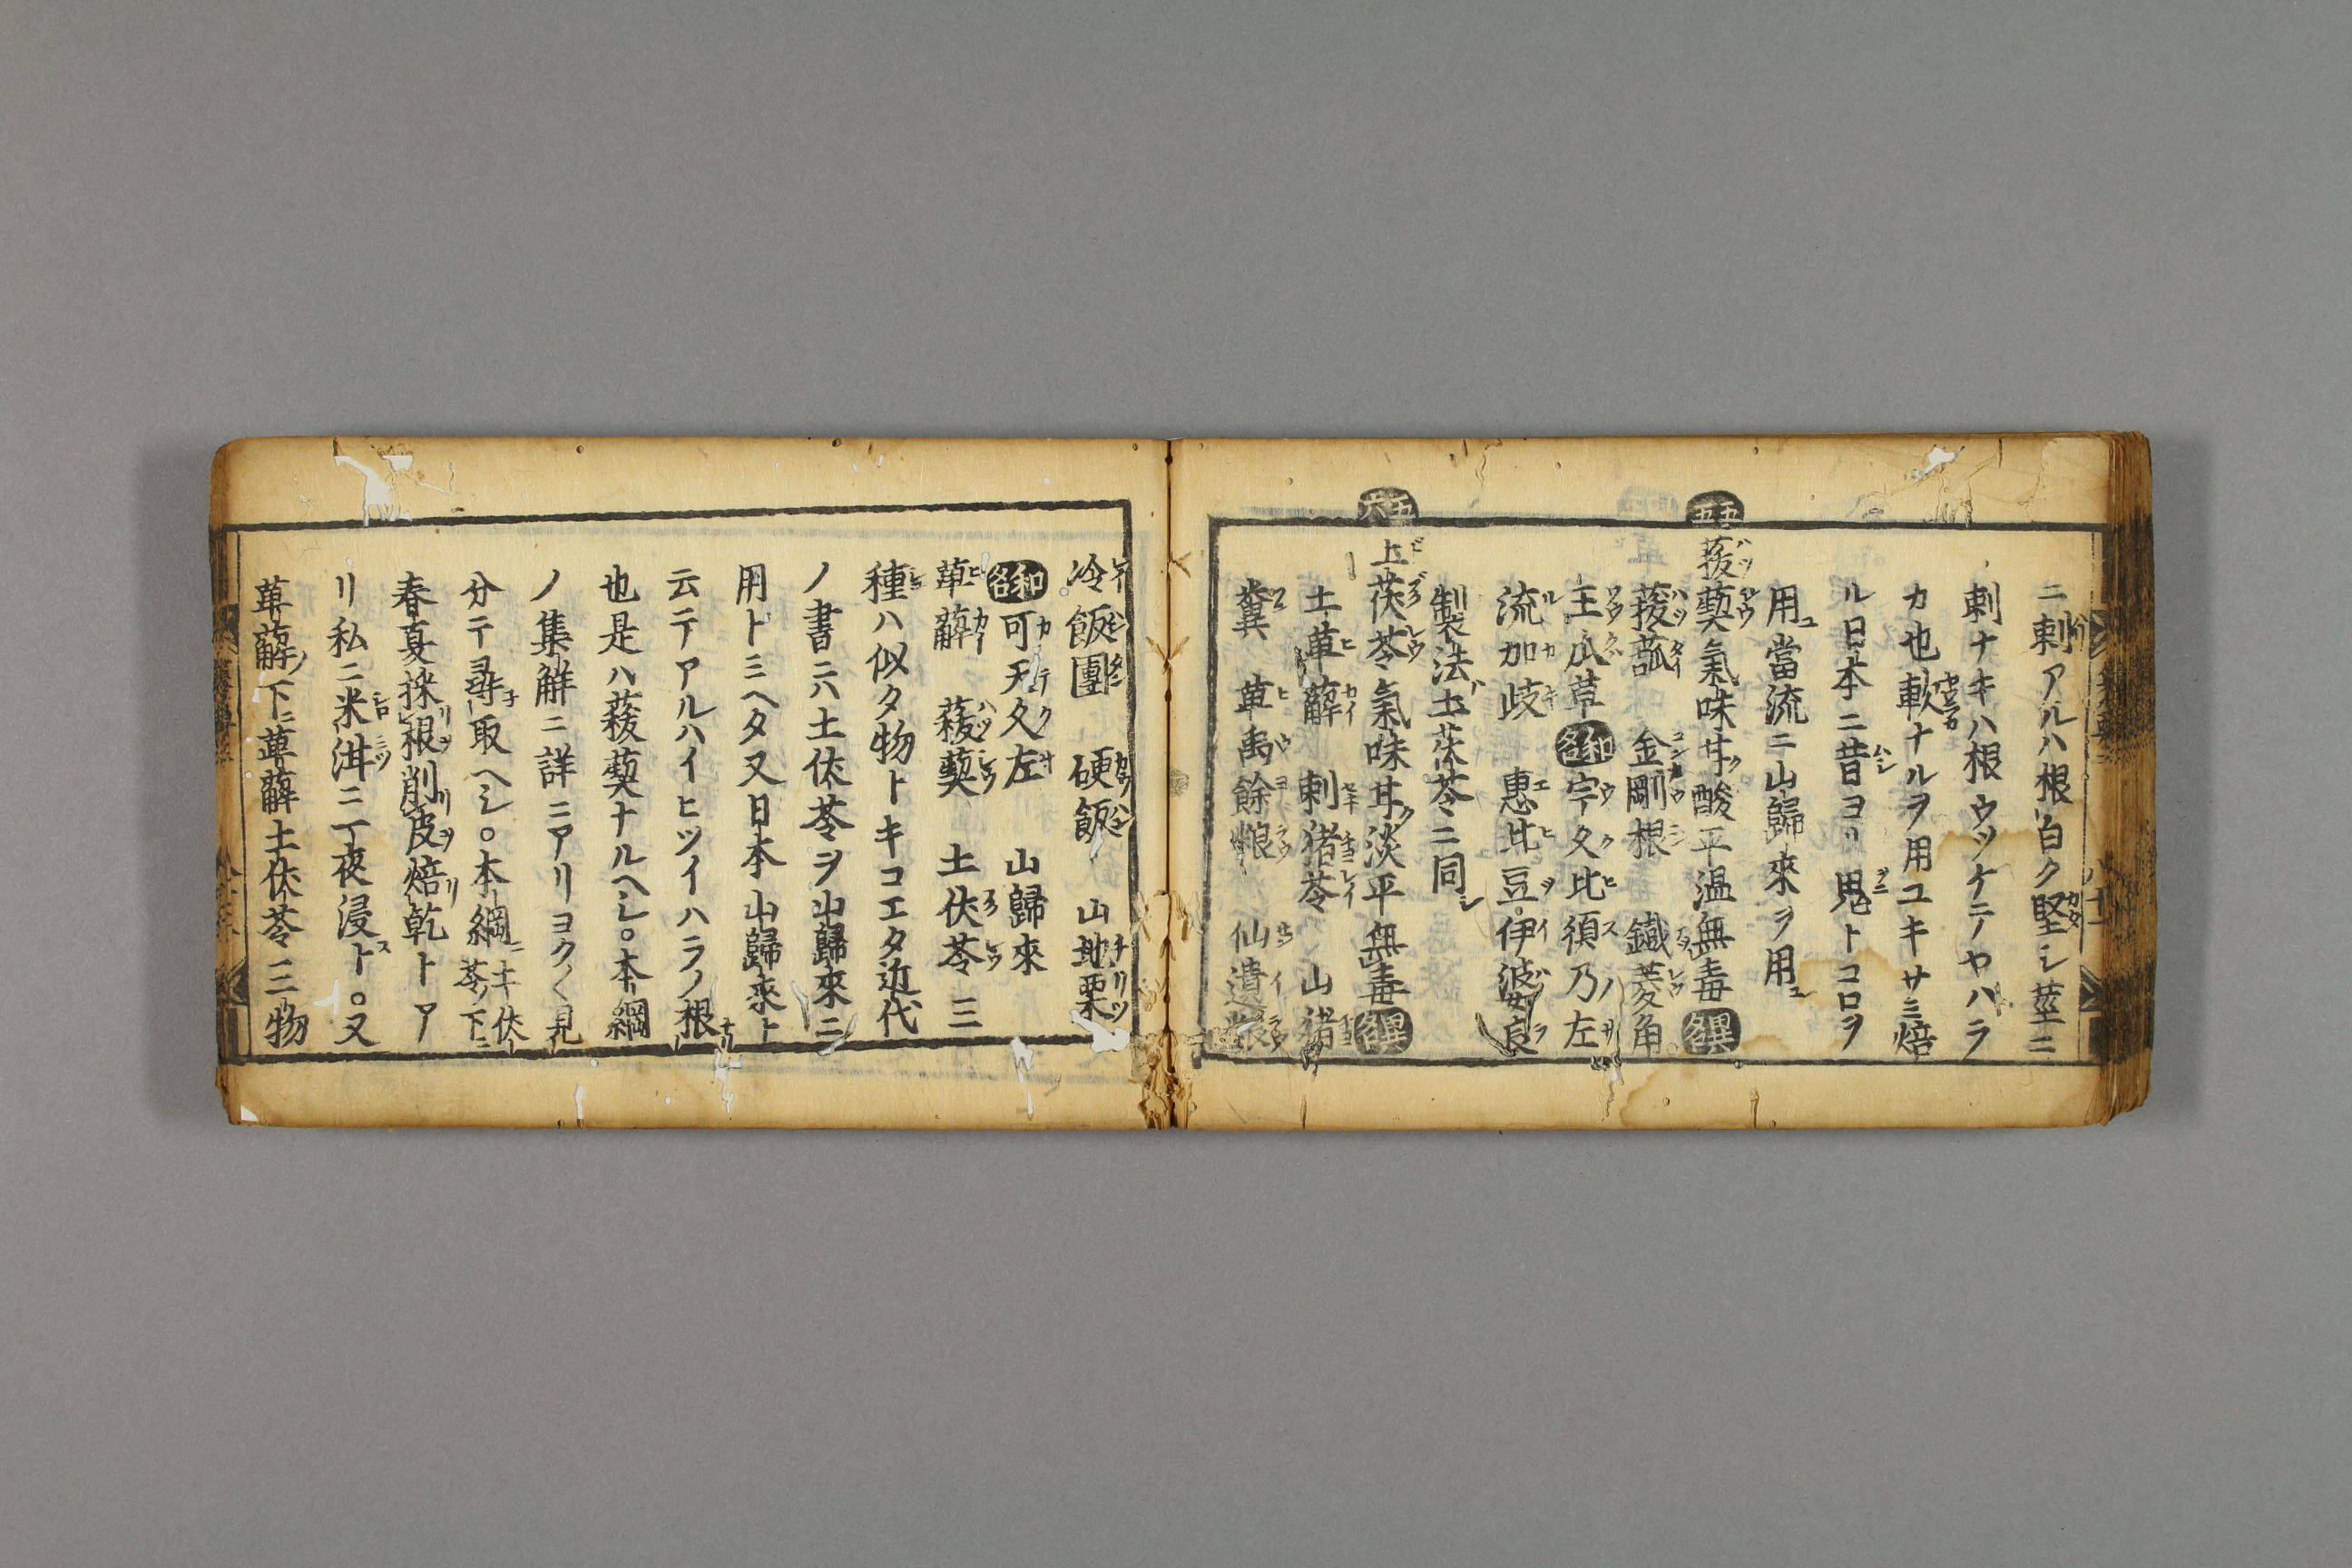 ニ刺アルハ根白ク堅シ莖ニ
刺ナキハ根ウツケテヤハラ
カ也軟ナルヲ用ユキサミ焙
ル日本ニ昔ヨリ鬼トコロヲ
用當流ニ山歸來ヲ用
五五
菝葜氣味甘酸平温無毒異名
菝𦼮 金剛根 鐵菱角
王瓜草 和名 宇久比須乃左
流加岐 惠比豆伊婆良
製法土茯苓ニ同シ
五六
土茯苓氣味甘淡平無毒異名
土萆薢 刺猪苓 山猪
糞 草禹餘粮 仙遺粮
冷飯團 硬飯 山地栗
和名 可天久左 山歸來
萆薢 菝葜 土伏苓 三
種ハ似タ物トキコエタ近代
ノ書ニハ土伏苓ヲ山歸來ニ
用トミヘタ又日本山歸來ト
云テアルハイヒツイハラノ根ナリ
也是ハ菝葜ナルヘシ。本綱
ノ集解ニ詳ニアリヨクく見
分テ尋取ヘシ。本綱
春夏採根削皮焙乾トア
リ私ニ米泔ニ一夜浸ト。又
萆薢ノ下ニ萆薢土伏苓三物